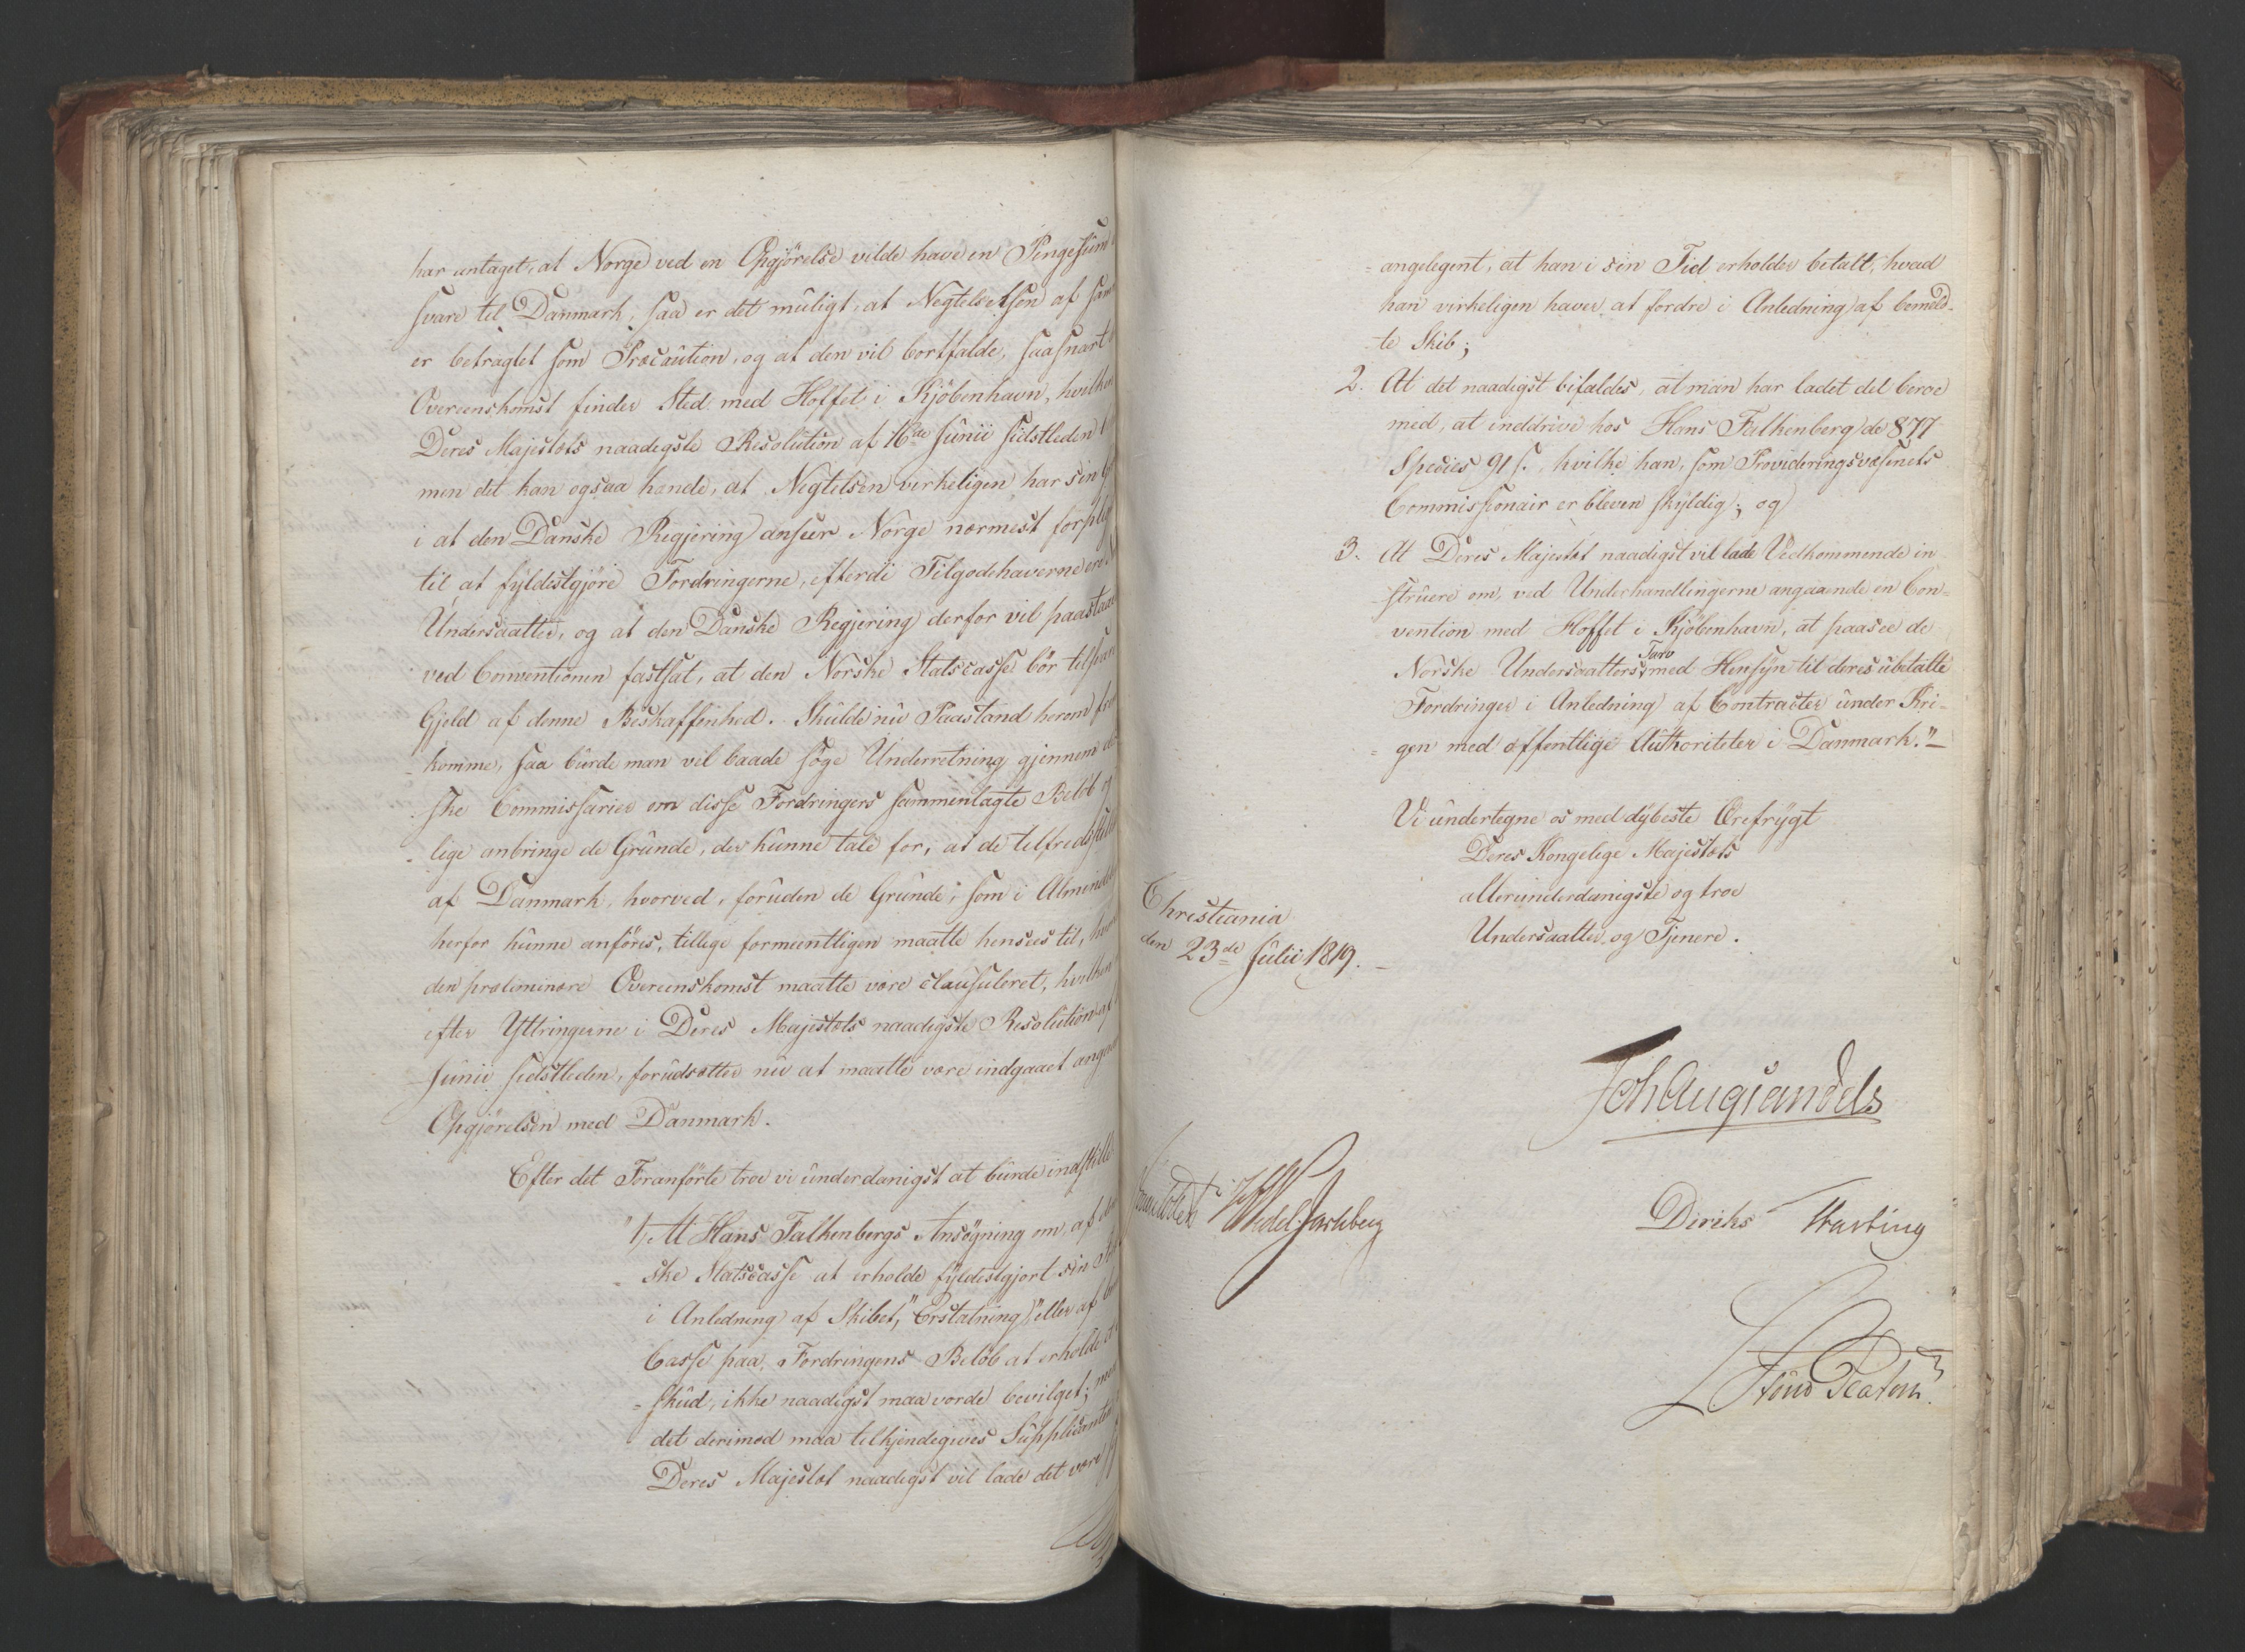 har antaget, at Norge ved en Opgjørelse vilde have en Pengesum
svare til Danmark, saa er det muligt, at Negtelsen af
er betragtet som Præcaution, og at den vil bortfalde, saasnart
Overeenskomst finder Sted med Hoffet i Kjöbenhavn, hvilken
Deres Majestæts naadigste Resolution af 16de Junii sidstleden
men det kan ogsaa hænde, at Negtelsen virkeligen har sin
i at den Danske Regjering anseer Norge nærmest
til at fyldestgjøre Fordringerne, efterdi Tilgodehaverne ere
Undersaatter, og at den Danske Regjering derfor vil paastaae
ved Conventionen fastsat, at den Norske Statscasse bör
Gjeld af denne Beskaffenhed. Skulde nu Paastand herom
komme, saa burde man vel baade søge Underretning gjennem
ske Commissarier om disse Fordringers sammenlagte Belöb
lige anbringe de Grunde, der kunne tale for, at de
af Danmark, hvorved, foruden de Grunde, som i
herfor kunne anföres, tillige formeentligen maatte hensees til,
den præliminære Overeenskomst maatte være clausuleret, hvilken
efter Yttringerne i Deres Majestæts naadigste Resolution af
Junii sidstleden, forudsætter nu at maatte være indgaaet
Opgjørelsen med Danmark.
Efter det Foranførte troe vi underdanigst at burde indstille
"1) At Hans Falkenbergs Ansøgning om, af
ske Statscasse at erholde fyldestgjort sin
i Anledning af Skibet, "Erstatning" eller af
Casse paa Fordringens Belöb at erholde
skud, ikke naadigst maa vorde bevilget;
det derimod maa tilkjendegives Supplicanten
Deres Majestæt naadigst vil lade det være
angelegent, at han i sin Tid erholder betalt, hvad
han virkeligen haver at fordre i Anledning af bemeld-
te Skib;
2. At det naadigst bifaldes, at man har ladet det beroe
med, at inddrive hos Hans Falkenberg de 877
Species 91 s. hvilke han, som Provideringsvæsenets
Commissionair er bleven skyldig; og
3. At Deres Majestæt naadigst vil lade Vedkommende in
struere om, ved Underhandlingerne angaaende en Con=
vention med Hoffet i Kjöbenhavn, at paasee de
Tarv
Norske Undersaatters med Hensyn til deres ubetalte
Fordringer i Anledning af Contracter under Kri-
gen med offentlige Authoriteter i Danmark." —
Vi undertegne os med dybeste Ærefrygt
Deres Kongelige Majestæts
allerunderdanigste og troe
Undersaatter og Tjenere.
Christiania
den 23de Julii 1819. —
Joh Aug Sandels
Wedel Jarlsberg
Diriks